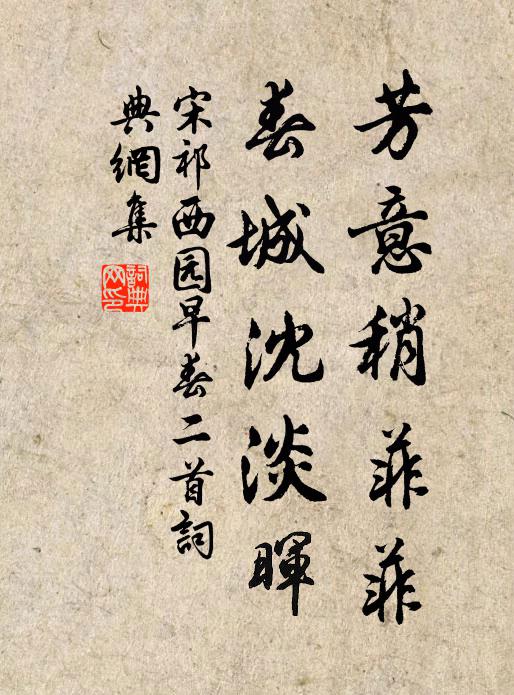 芳意稍菲菲
春城沈淡暉
宋祁西园早春二首詞
典網集
詞典網印